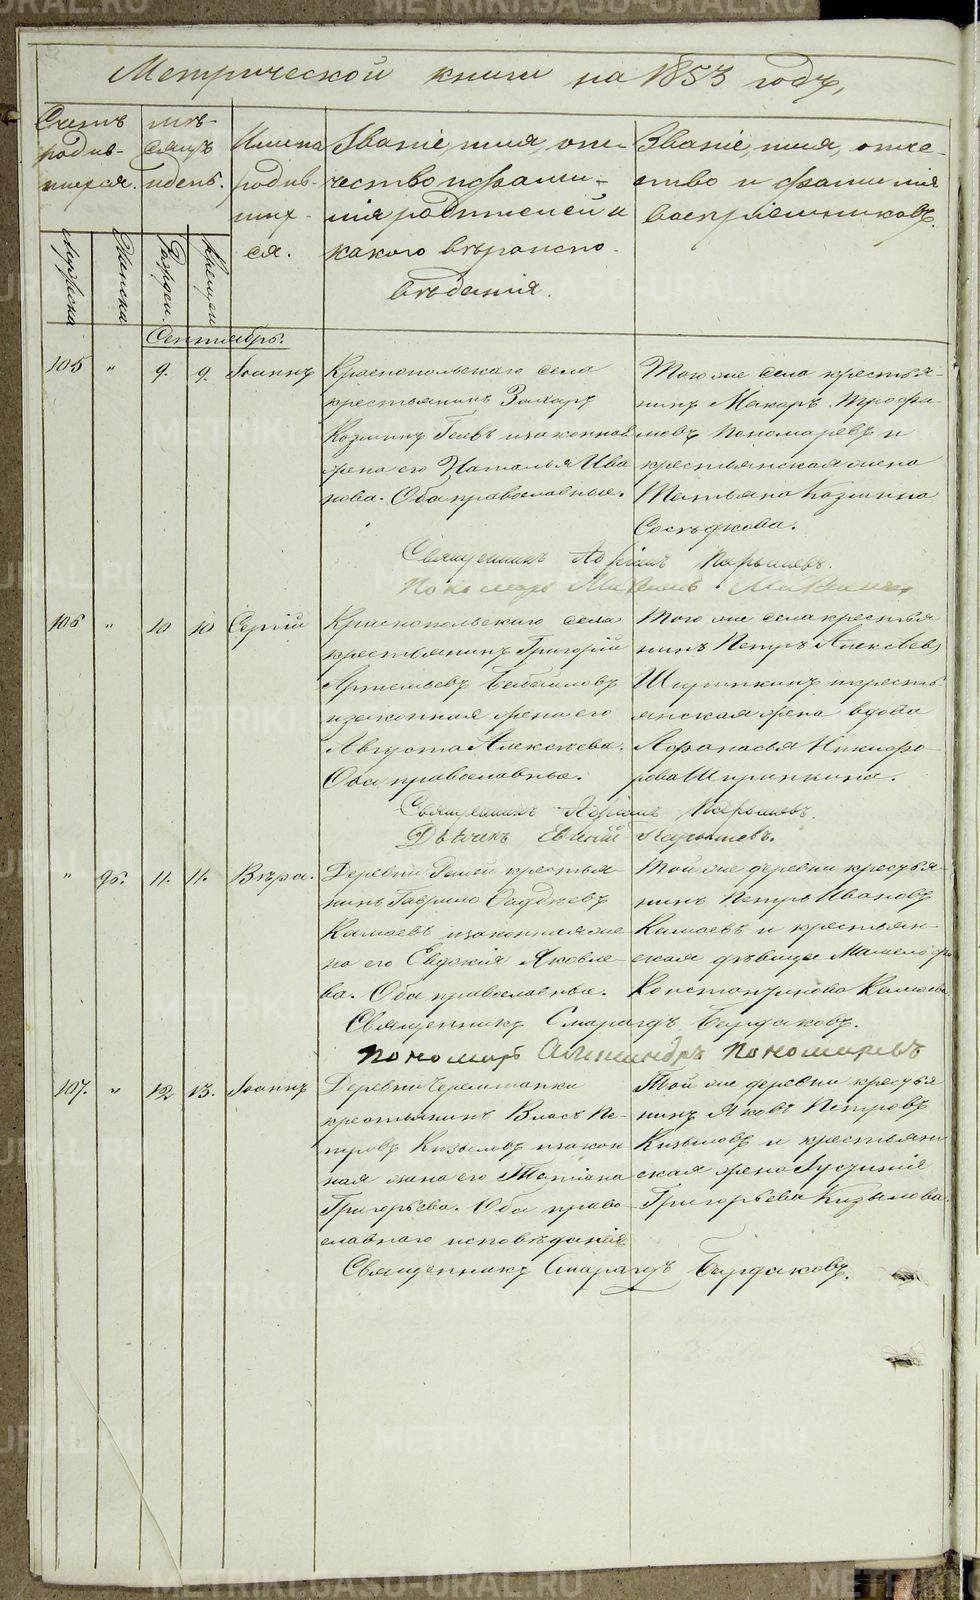 Метрической книги на 1853 годъ,
Счетъ родив-шихся.
Мужеска
Женска
мѣ-сяцъ и день.
Рожден.
Крещен.
Имена родив-ших-ся.
Званіе, имя, оте-
чество и фами-
лія родителей и
какого вѣроиспо-
вѣданія.
Званіе, имя, отче-
ство и фамилія
воспріемниковъ.
Сентябрь.
105 " 9. 9. Іоаннъ
Краснопольскаго села
крестьянинъ Захаръ
Козминъ Геевъ и законная
жена его Наталья Ива
нова. Оба православные.
Того же села крестья-
нинъ Макаръ Трофи-
мовъ Пономаревъ и
крестьянская жена
Татьяна Козмина
Сосѣдкова.
Священникъ Адріанъ Парышевъ.
Пономарь
106 " 10 10 Сергій
Краснопольскаго села
крестьянинъ Григорій
Артемьевъ
и законная жена его
Августа Алексѣева.
Оба православные.
Того же села крестья
нинъ Петръ Алексѣевъ
Ширинкинъ и кресть-
янская жена вдова
Афанасья Никифо-
рова Ширинкина.
Священникъ Адріанъ Парышевъ.
Дьячекъ Евгеній Парышевъ.
" 96. 11. 11. Вѣра.
Деревни крестья-
нинъ Гаврило Фаддѣевъ
Камаевъ и законная же
на его Евдокія Яковле-
ва. Оба православные.
Той же деревни крестья-
нинъ Петръ Ивановъ
Камаевъ и крестьян-
ская дѣвица
Константинова Камаева
Священникъ Смарагдъ Бирюковъ.
Пономарь Александръ Пономаревъ
107. " 12 13. Іоаннъ
Деревни Черемшанки
крестьянинъ Власъ Пе-
тровъ Кизыловъ и закон
ная жена его Татіана
Григорьева. Оба право-
славнаго исповѣданія
Той же деревни крестья
нинъ Яковъ Петровъ
Кизыловъ и крестьян
ская жена Іустинія
Григорьева Кизылова.
Священникъ Смарагдъ Бирюковъ.
METRIKI.GASO-URAL.RU